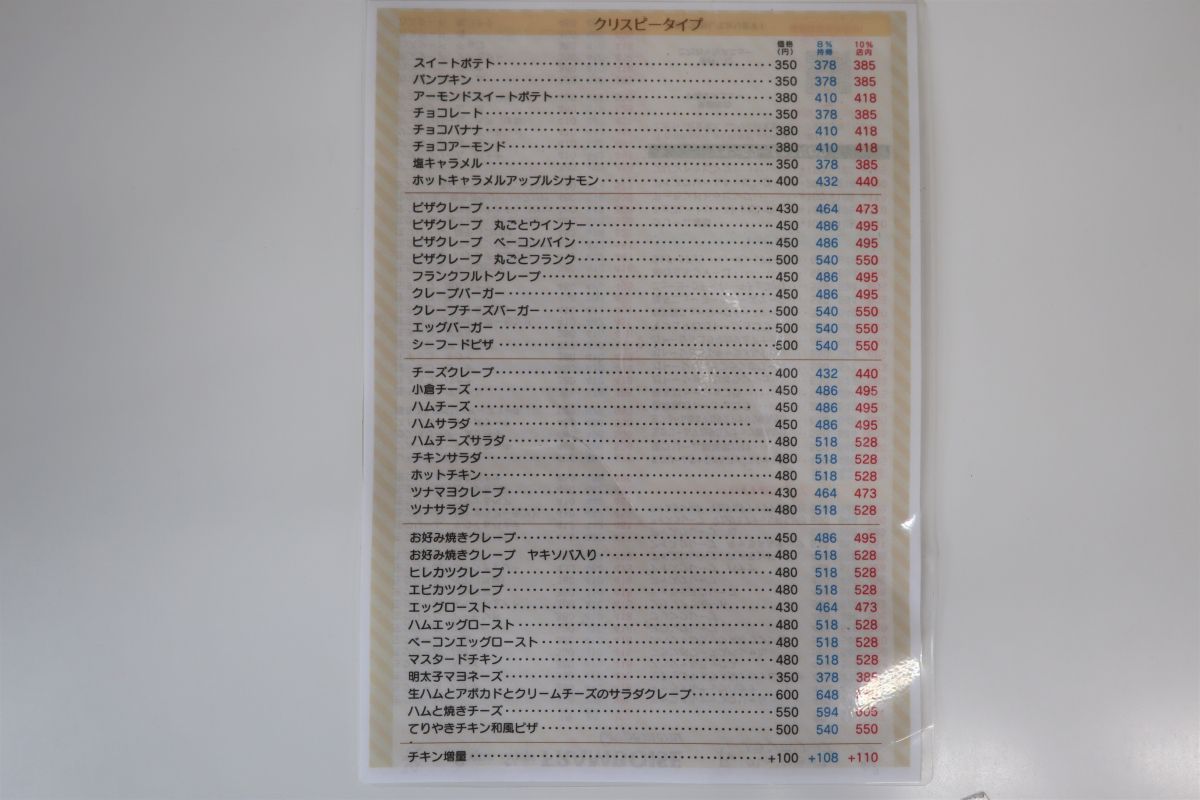 クリスピータイプ
価格(円) 8%持帰 10%店内
スイートポテト 350 378 385
パンプキン 350 378 385
アーモンドスイートポテト 380 410 418
チョコレート 350 378 385
チョコバナナ 380 410 418
チョコアーモンド 380 410 418
塩キャラメル 350 378 385
ホットキャラメルアップルシナモン 400 432 440
ピザクレープ 430 464 473
ピザクレープ 丸ごとウインナー 450 486 495
ピザクレープ ベーコンパイン 450 486 495
ピザクレープ 丸ごとフランク 500 540 550
フランクフルトクレープ 450 486 495
クレープバーガー 450 486 495
クレープチーズバーガー 500 540 550
エッグバーガー 500 540 550
シーフードピザ 500 540 550
チーズクレープ 400 432 440
小倉チーズ 450 486 495
ハムチーズ 450 486 495
ハムサラダ 450 486 495
ハムチーズサラダ 480 518 528
チキンサラダ 480 518 528
ホットチキン 480 518 528
ツナマヨクレープ 430 464 473
ツナサラダ 480 518 528
お好み焼きクレープ 450 486 495
お好み焼きクレープ ヤキソバ入り 480 518 528
ヒレカツクレープ 480 518 528
エビカツクレープ 480 518 528
エッグロースト 430 464 473
ハムエッグロースト 480 518 528
ベーコンエッグロースト 480 518 528
マスタードチキン 480 518 528
明太子マヨネーズ 350 378 385
生ハムとアボカドとクリームチーズのサラダクレープ 600 648
ハムと焼きチーズ 550 594 605
てりやきチキン和風ピザ 500 540 550
チキン増量 +100 +108 +110